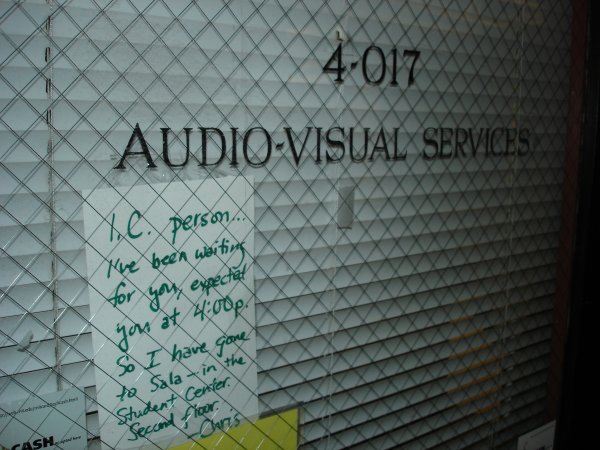 4-017
AUDIO-VISUAL SERVICES
I.C. person...
I've been waiting
for you, expected
you at 4:00p.
So I have gone
to Sala - in the
Student Center.
Second floor
-Chris
CASH
accepted here